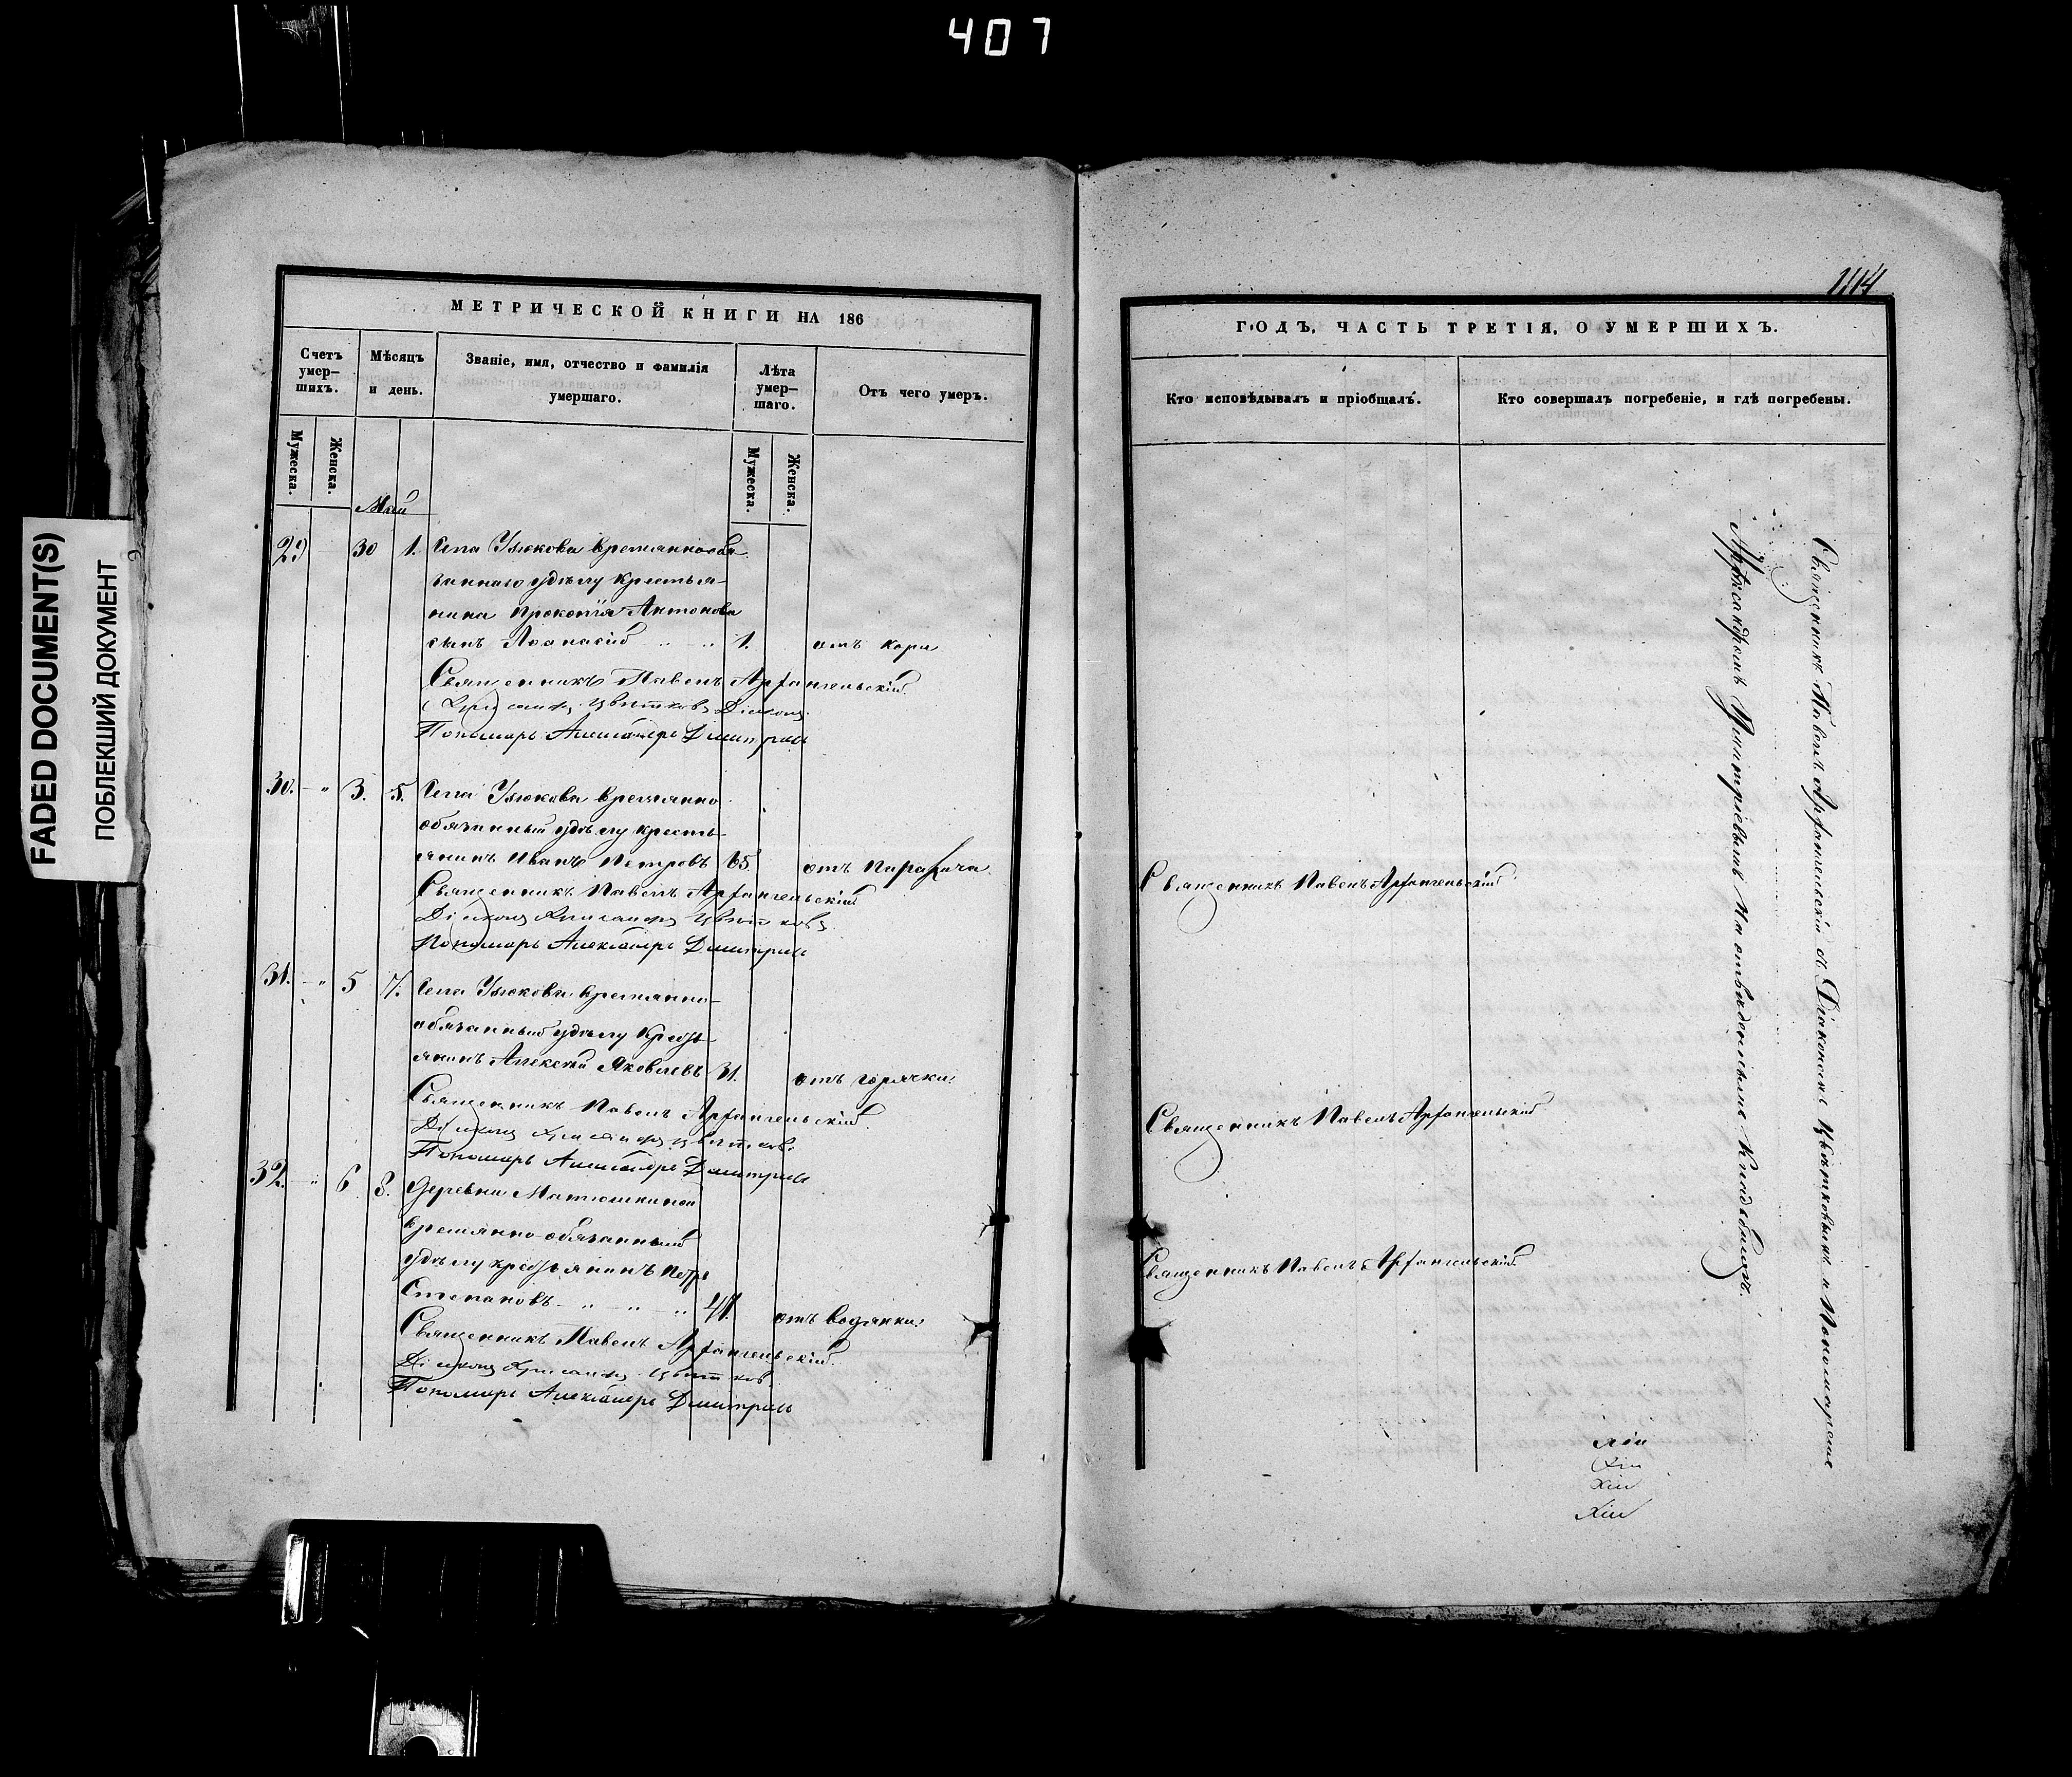 407
FADED DOCUMENT(S)
ПОБЛЕКШИЙ ДОКУМЕНТ
МЕТРИЧЕСКОЙ КНИГИ НА 186
Счетъ умер-шихъ.
Мѣсяцъ и день.
Званіе, имя, отчество и фамилія умершаго.
Лѣта умер-шаго.
Отъ чего умеръ.
Мужеска.
Женска.
Мужеска.
Женска.
Май
29 30 1. Села Улюкова временнообя-
заннаго удѣлу крестья-
нина Прокопія Антонова
сынъ Афанасій 1. отъ кори
Священникъ Павелъ Архангельскій
Цвѣтковъ Діаконъ
Пономарь Александръ Димитріевъ
30. " 3. 5. Села Улюкова временно
обязанный удѣлу кресть-
янинъ Иванъ Петровъ 65. отъ паралича
Священникъ Павелъ Архангельскій
Діаконъ Цвѣтковъ
Пономарь Александръ Димитріевъ
31. " 5 7. Села Улюкова временно-
обязанный удѣлу кресть-
янинъ Алексѣй Яковлевъ 31. отъ горячки.
Священникъ Павелъ Архангельскій
Діаконъ Цвѣтковъ
Пономарь Александръ Димитріевъ
32. " 6 8. Деревни Матюшкиной
временно-обязанный
удѣлу крестьянинъ Петръ
Степановъ " " " отъ водянки.
Священникъ Павелъ Архангельскій
Діаконъ Цвѣтковъ
Пономарь Александръ Димитріевъ
ГОДЪ, ЧАСТЬ ТРЕТІЯ, О УМЕРШИХЪ.
Кто исповѣдывалъ и пріобщалъ.
Кто совершалъ погребеніе, и гдѣ погребены.
Священникъ Павелъ Архангельскій
Священникъ Павелъ Архангельскій
Священникъ Павелъ Архангельскій
Священникъ Павелъ Архангельскій съ Діакономъ Цвѣтковымъ и Пономаремъ
Александромъ Димитріевымъ На отведенномъ Кладбищѣ.